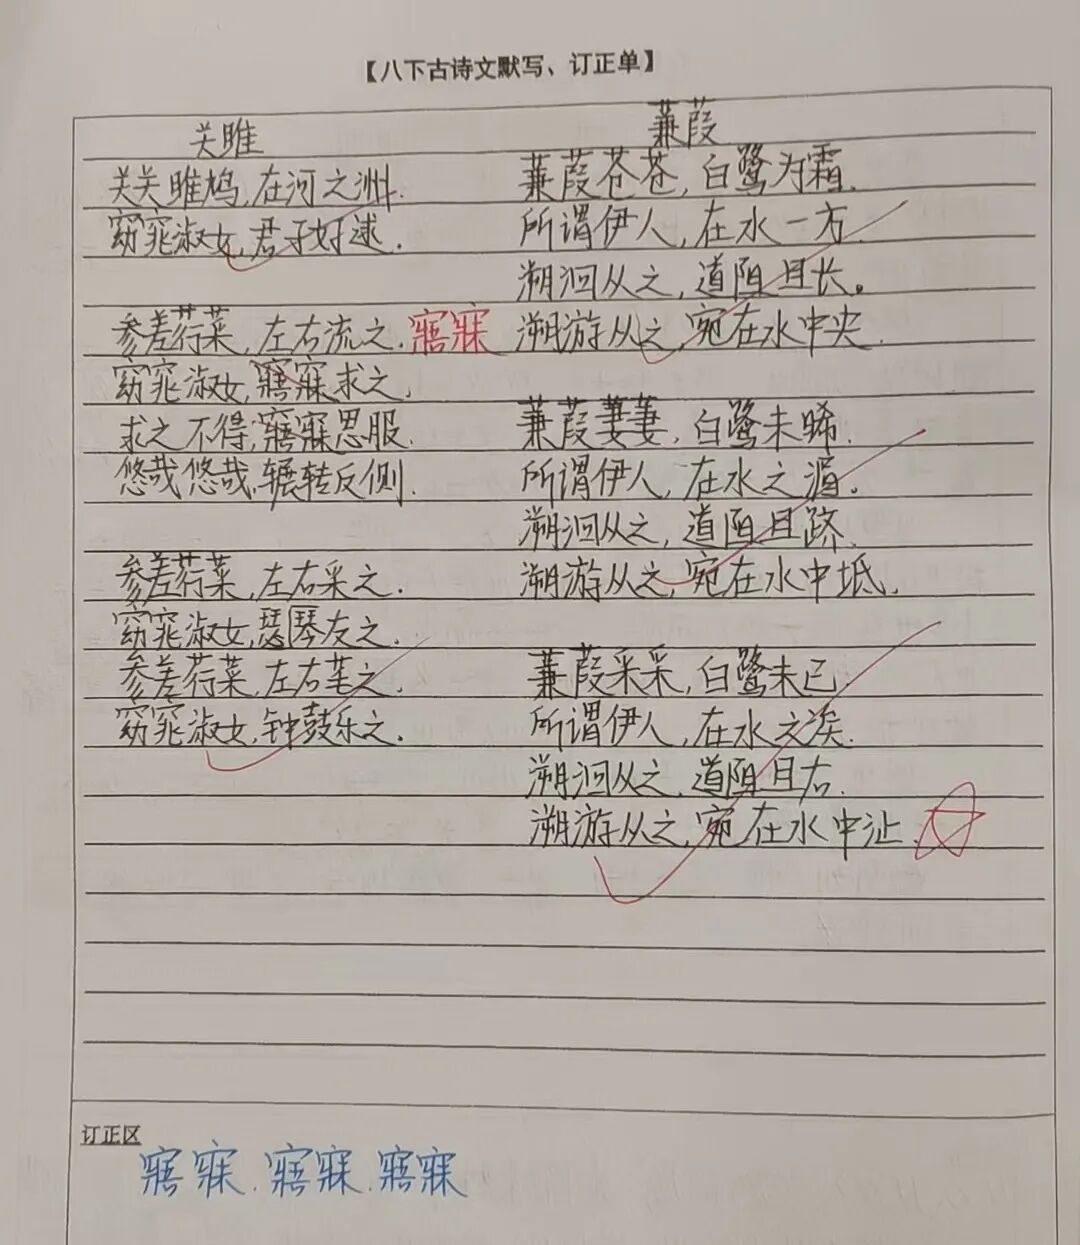 【八下古诗文默写、订正单】
关雎
关关雎鸠,在河之洲.
窈窕淑女,君子好逑.
参差荇菜,左右流之.
寤寐
窈窕淑女,寤寐求之.
求之不得,寤寐思服.
悠哉悠哉,辗转反侧.
参差荇菜,左右采之.
窈窕淑女,瑟琴友之.
参差荇菜,左右芼之.
窈窕淑女,钟鼓乐之.
蒹葭
蒹葭苍苍,白鹭为霜.
所谓伊人,在水一方.
溯洄从之,道阻且长。
溯游从之,宛在水中央.
蒹葭萋萋,白鹭未晞.
所谓伊人,在水之湄.
溯洄从之,道阻且跻.
溯游从之,宛在水中坻.
蒹葭采采,白鹭未已.
所谓伊人,在水之涘.
溯洄从之,道阻且右.
溯游从之,宛在水中沚.
订正区
寤寐.寤寐.寤寐